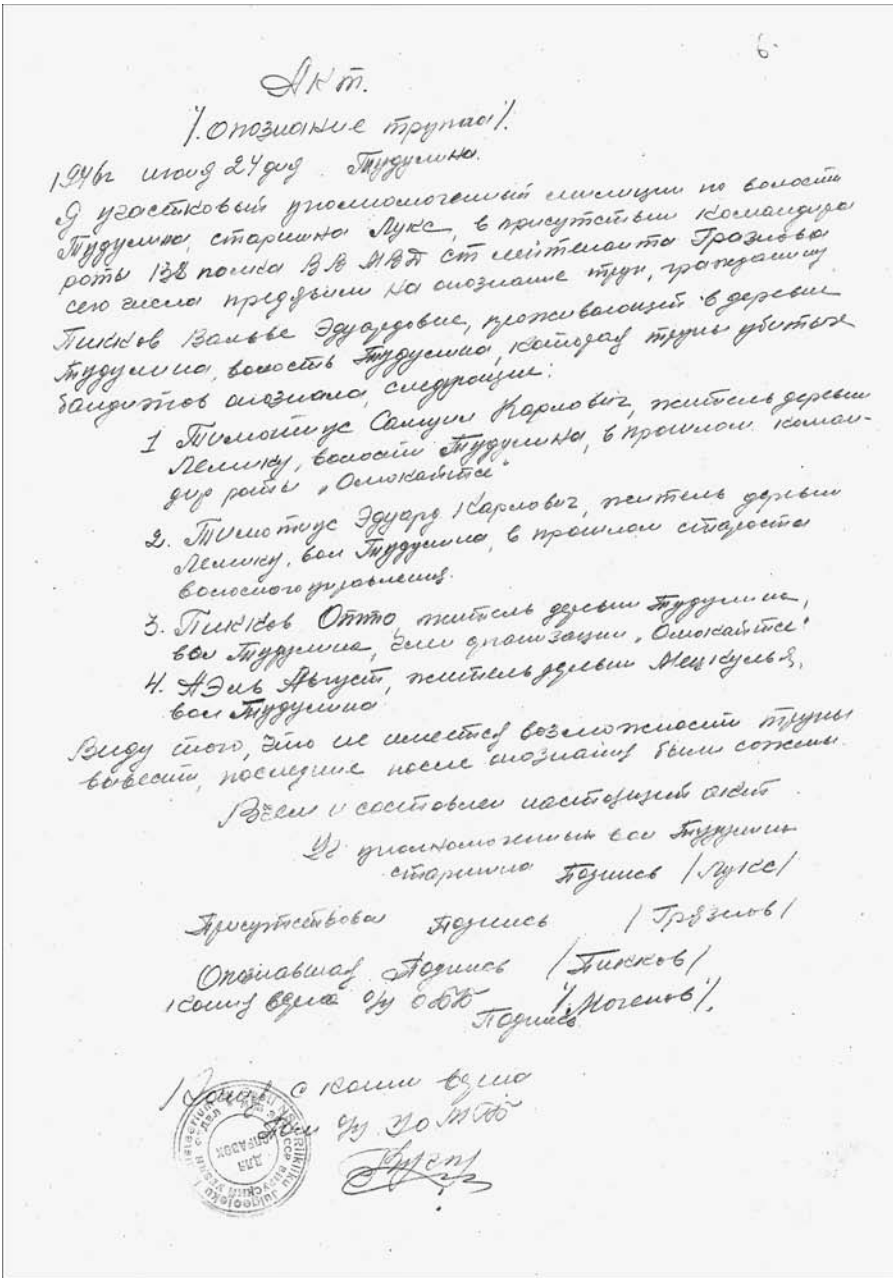 6.
Акт.
/. опознание трупа/.
1946г июня 24 дня Тудулина.
Я участковый уполномоченный милиции по волости
Тудулина, старшина Лукс, в присутствии командира
роты 138 полка ВВ МВД ст лейтенанта Грязнова
сего числа предъявили на опознание труп, гражданину
Пикков Вальве Эдуардовне, проживающей в деревне
Тудулина, волость Тудулина, которая трупы убитых
бандитов опознала, следующие:
1 Тимотиус Самуил Карлович, житель деревни
Лемику, волости Тудулина, в прошлом коман-
дир роты „Омокайтсе"
2. Тимотиус Эдуард Карлович, житель деревни
Лемику, вол Тудулина, в прошлом староста
волосного управления.
3. Пикков Отто, житель деревни Тудулина,
вол Тудулина, член организации „Омокайтсе"
4. Аэль Август, житель деревни Мецкулья,
вол Тудулина
Виду того, что не имеется возможности трупы
вывести, последние после опознания были сожены.
В чем и составлен настоящий акт
Уч уполномоченный вол Тудулина
старшина Подпись /Лукс/
Присутствовал Подпись /Грязнов/
Опознавшая Подпись /Пикков/
Копия верна о/у ОББ
Подпись
Копия с копии верна
о/у
ДЛЯ
СПРАВОК